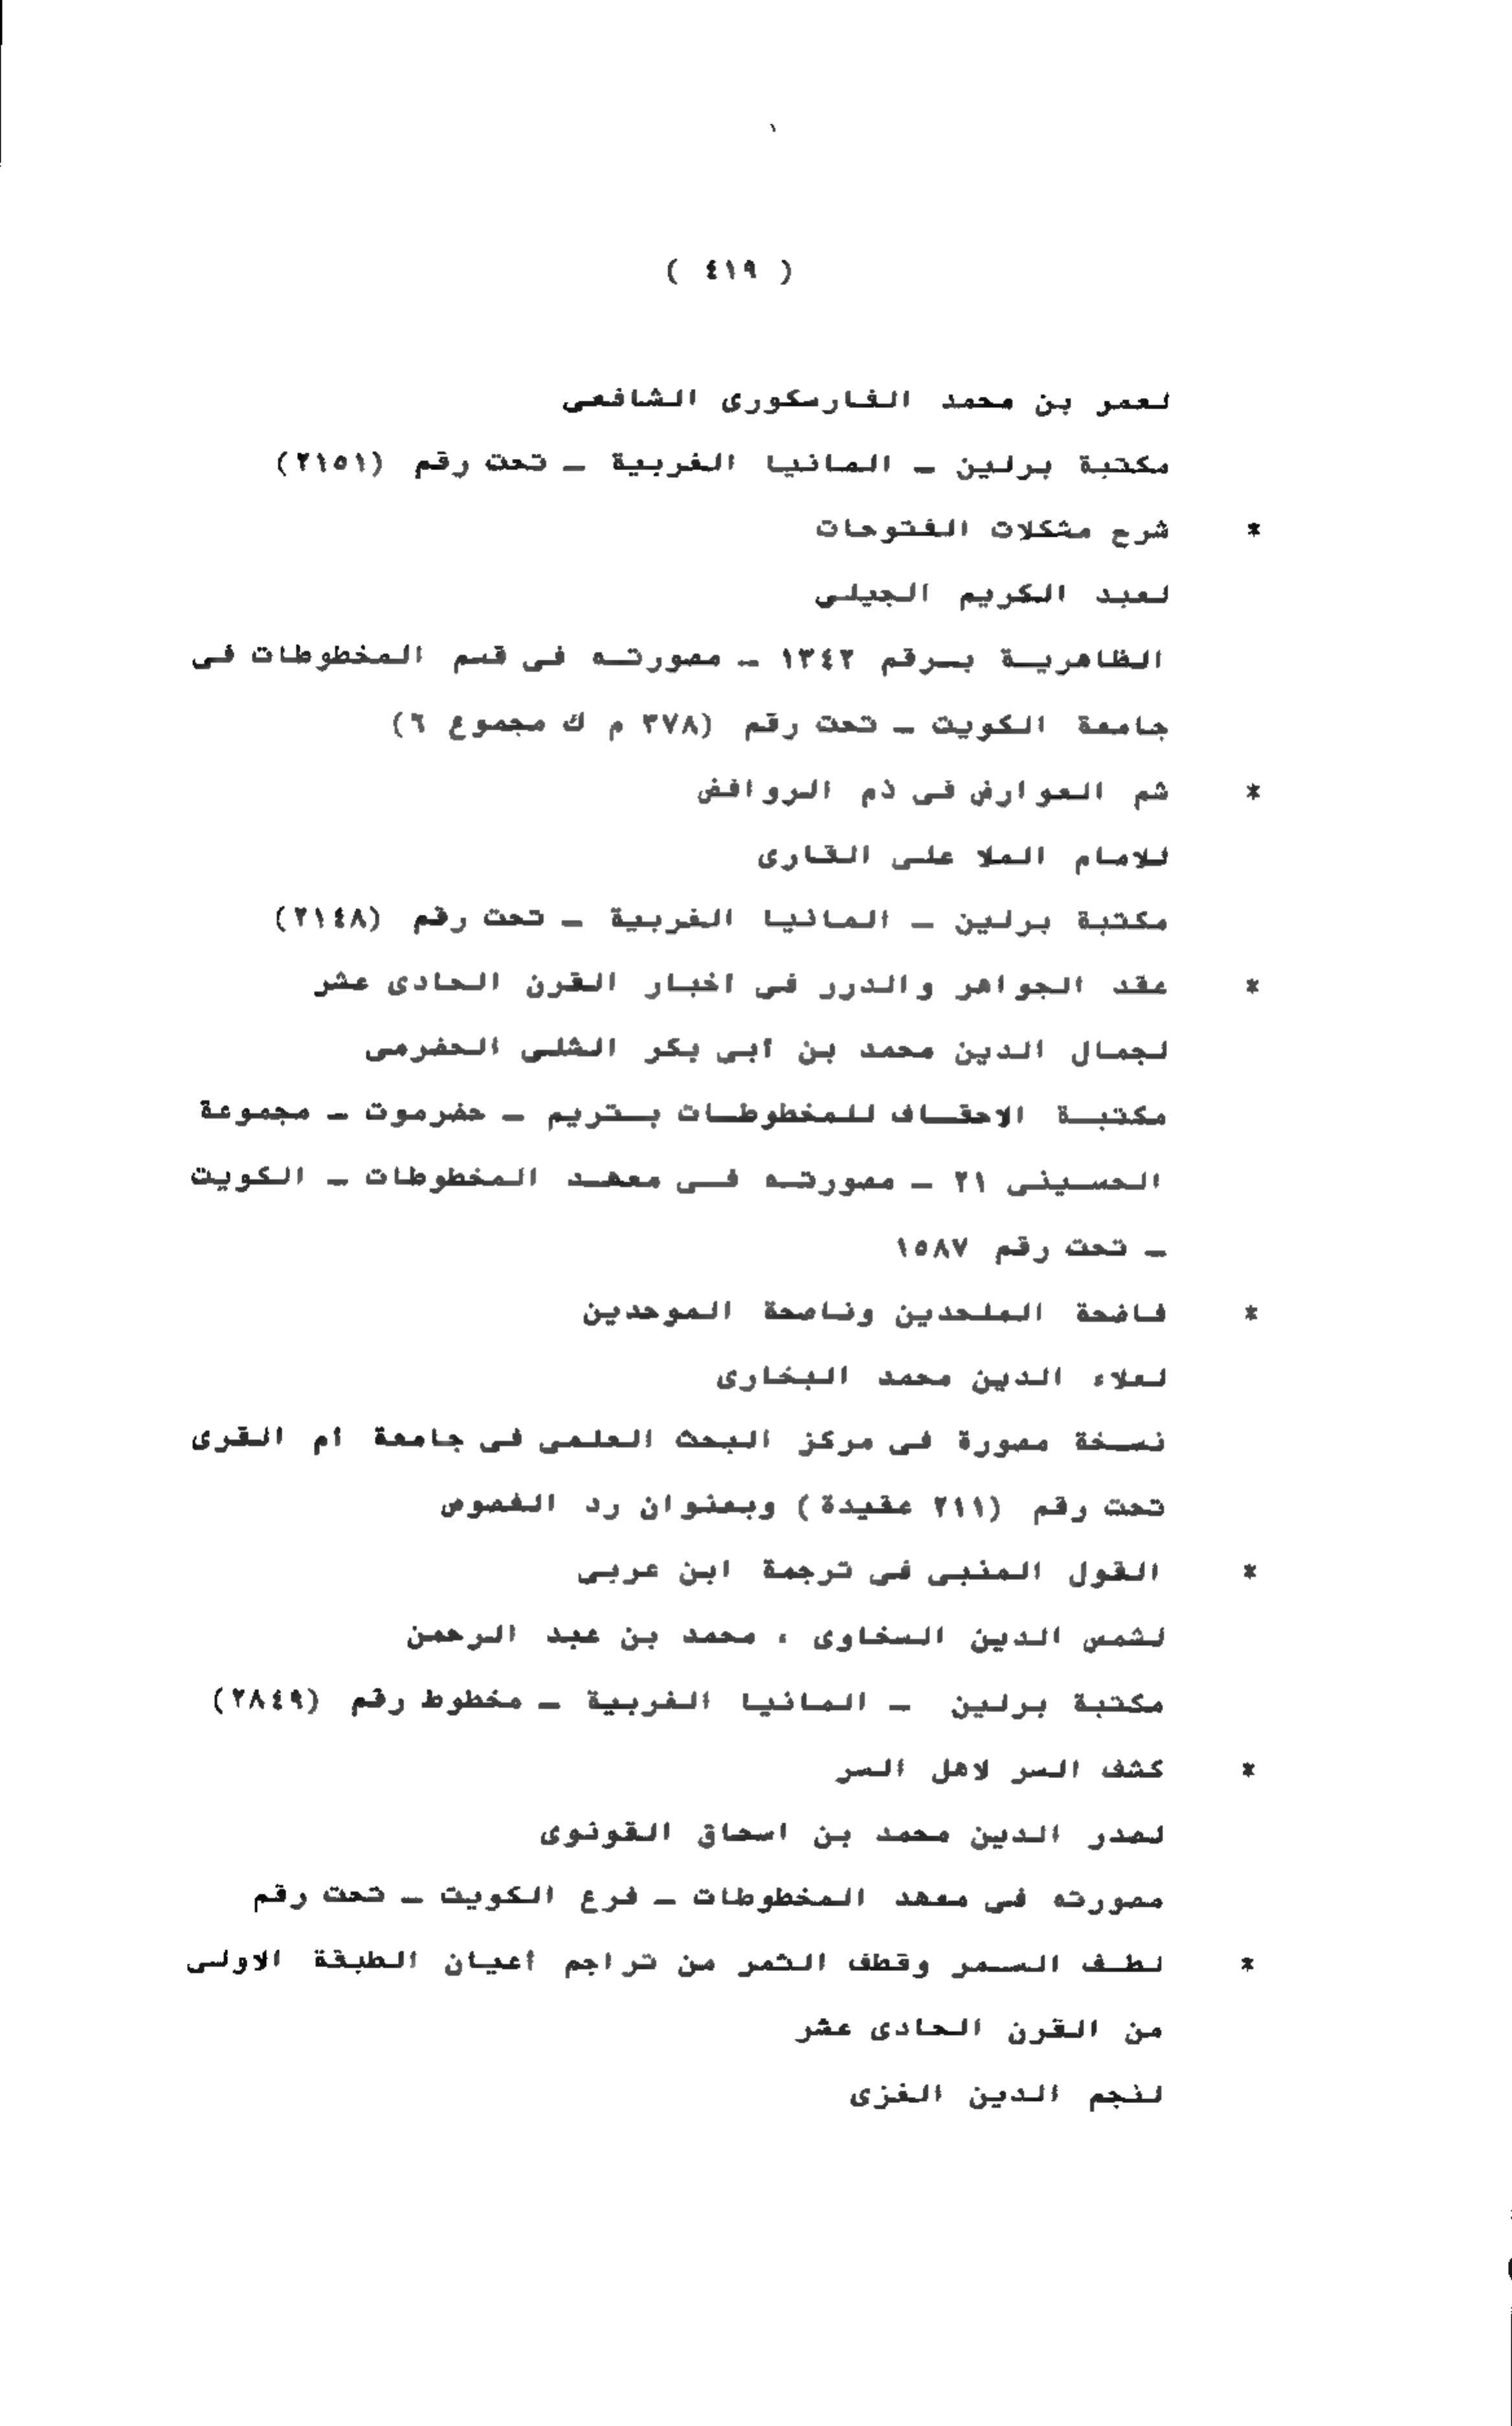 ( ٤١٩ )
لعمر بن محمد الفارسكورى الشافعى
مكتبة برلين – المانيا الغربية – تحت رقم (٢١٥١)
* شرح مشكلات الفتوحات
لعبد الكريم الجيلى
الظاهرية برقم ١٣٤٢ – مصورته فى قسم المخطوطات فى
جامعة الكويت – تحت رقم (٣٧٨ م ك مجموع ٦)
* شم العوارض فى ذم الروافض
للامام الملا على القارى
مكتبة برلين – المانيا الغربية – تحت رقم (٢١٤٨)
* عقد الجواهر والدرر فى اخبار القرن الحادى عشر
لجمال الدين محمد بن أبى بكر الشلى الحضرمى
مكتبة الاحقاف للمخطوطات بتريم – حضرموت – مجموعة
الحسينى ٢١ – مصورته فى معهد المخطوطات – الكويت
– تحت رقم ١٥٨٧
* فاضحة الملحدين وناصحة الموحدين
لعلاء الدين محمد البخارى
نسخة مصورة فى مركز البحث العلمى فى جامعة أم القرى
تحت رقم (٢١١ عقيدة) وبعنوان رد الفصوص
* القول المنبى فى ترجمة ابن عربى
لشمس الدين السخاوى ، محمد بن عبد الرحمن
مكتبة برلين – المانيا الغربية – مخطوط رقم (٢٨٤٩)
* كشف السر لاهل السر
لصدر الدين محمد بن اسحاق القونوى
مصورته فى معهد المخطوطات – فرع الكويت – تحت رقم
* لطف السمر وقطف الثمر من تراجم أعيان الطبقة الاولى
من القرن الحادى عشر
لنجم الدين الغزى